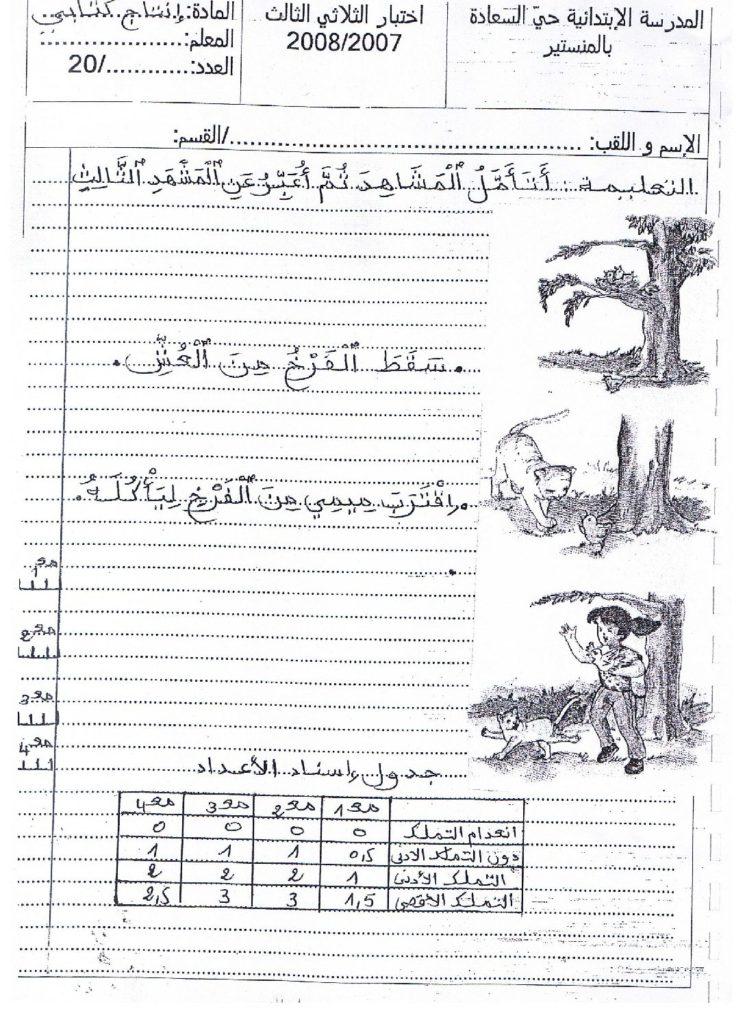 المدرسة الإبتدائية حيّ السعادة
بالمنستير
اختبار الثلاثي الثالث
2008/2007
المادة: إنتاج كتابي
المعلم:......................
العدد:............/20
الإسم و اللقب: ................................................/القسم:
التعليمة : أَتَأَمَّلُ الْمَشَاهِدَ ثُمَّ أُعَبِّرُ عَنِ الْمَشْهَدِ الثَّالِثِ
. سَقَطَ الْفَرْخُ مِنَ الْعُشِّ .
. اِقْتَرَبَ مِيمِي مِنَ الْفَرْخِ لِيَأْكُلَهُ .
مع1
مع2
مع3
مع4
جدول إسناد الأعداد
مع1 مع2 مع3 مع4
انعدام التملك 0 0 0 0
دون التملك الأدنى 0,5 1 1 1
التملك الأدنى 1 2 2 2
التملك الأقصى 1,5 3 3 2,5